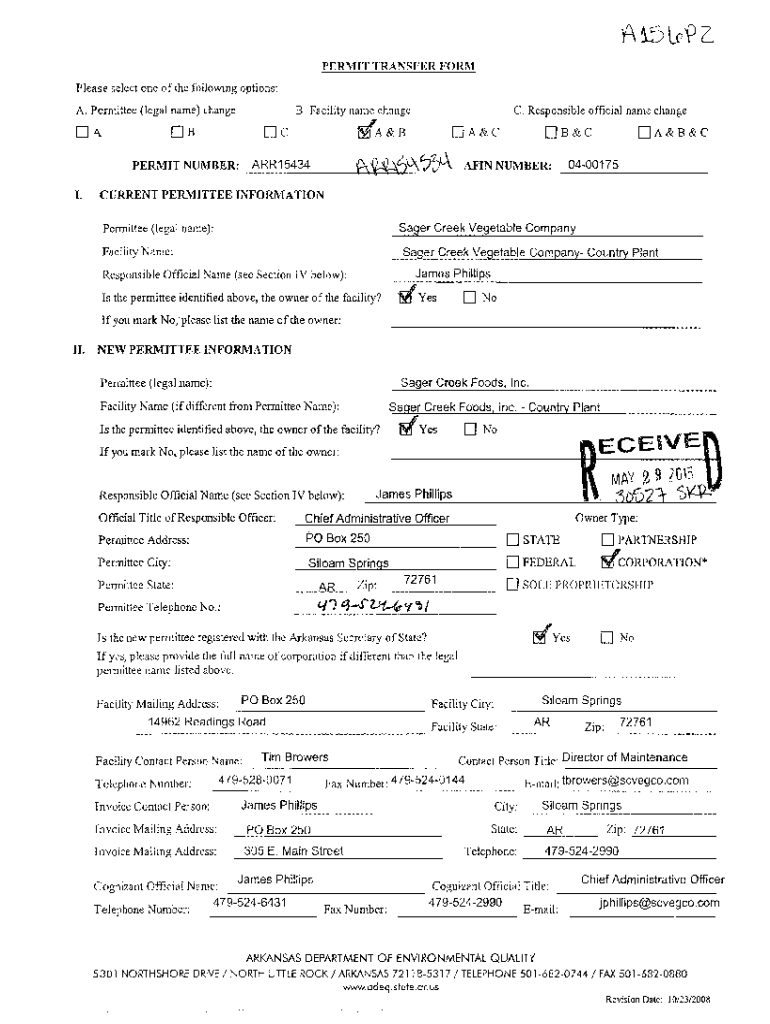 A156PZ
PERMIT TRANSFER FORM
Please select one of the following options:
A. Permittee (legal name) change B Facility name change C. Responsible official name change
A B C A & B A & C B & C A & B & C
PERMIT NUMBER: ARR15434 ARR154534 AFIN NUMBER: 04-00175
I. CURRENT PERMITTEE INFORMATION
Permittee (legal name): Sager Creek Vegetable Company
Facility Name: Sager Creek Vegetable Company- Country Plant
Responsible Official Name (see Section IV below): James Phillips
Is the permittee identified above, the owner of the facility? Yes No
If you mark No, please list the name of the owner:
II. NEW PERMITTEE INFORMATION
Permittee (legal name): Sager Creek Foods, Inc.
Facility Name (if different from Permittee Name): Sager Creek Foods, Inc. - Country Plant
Is the permittee identified above, the owner of the facility? Yes No
If you mark No, please list the name of the owner:
RECEIVED
MAY 29 2015
30527 SKR
Responsible Official Name (see Section IV below): James Phillips
Official Title of Responsible Officer: Chief Administrative Officer Owner Type:
Permittee Address: PO Box 250 STATE PARTNERSHIP
Permittee City: Siloam Springs FEDERAL CORPORATION*
Permittee State: AR Zip: 72761 SOLE PROPRIETORSHIP
Permittee Telephone No.: 479-524-6431
Is the new permittee registered with the Arkansas Secretary of State? Yes No
If yes, please provide the full name of corporation if different than the legal
permittee name listed above.
Facility Mailing Address: PO Box 250 Facility City: Siloam Springs
14962 Readings Road Facility State: AR Zip: 72761
Facility Contact Person Name: Tim Browers Contact Person Title: Director of Maintenance
Telephone Number: 479-528-0071 Fax Number: 479-524-0144 E-mail: tbrowers@scvegco.com
Invoice Contact Person: James Phillips City: Siloam Springs
Invoice Mailing Address: PO Box 250 State: AR Zip: 72761
Invoice Mailing Address: 305 E. Main Street Telephone: 479-524-2990
Cognizant Official Name: James Phillips Cognizant Official Title: Chief Administrative Officer
Telephone Number: 479-524-6431 Fax Number: 479-524-2990 E-mail: jphillips@scvegco.com
ARKANSAS DEPARTMENT OF ENVIRONMENTAL QUALITY
5301 NORTHSHORE DRIVE / NORTH LITTLE ROCK / ARKANSAS 72118-5317 / TELEPHONE 501-682-0744 / FAX 501-682-0880
www.adeq.state.ar.us
Revision Date: 10/23/2008